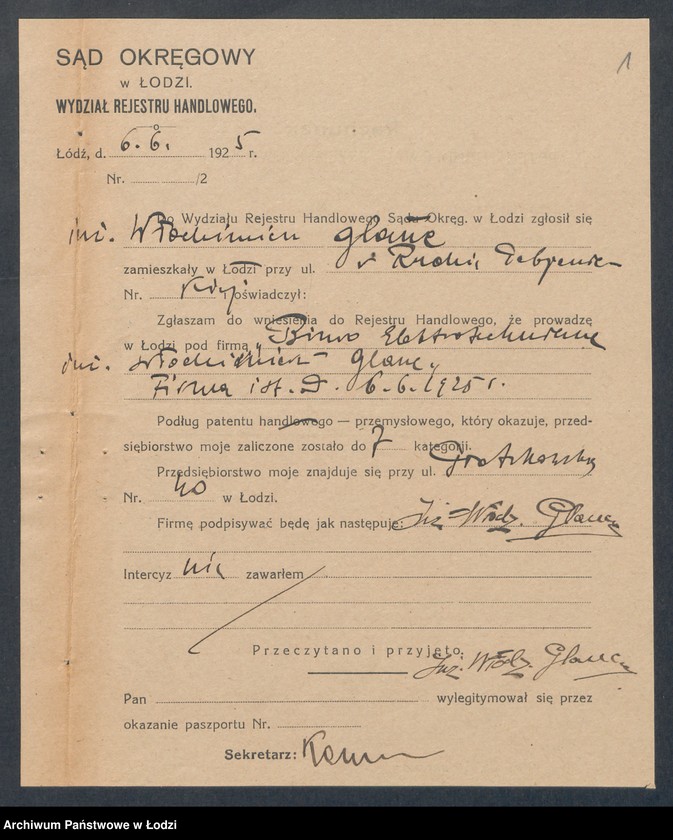 1
SĄD OKRĘGOWY
w ŁODZI.
WYDZIAŁ REJESTRU HANDLOWEGO.
Łódź, d. 6.6. 1925 r.
Nr. /2
Do Wydziału Rejestru Handlowego Sądu Okręg. w Łodzi zgłosił się
inż. Włodzimierz Glanc
zamieszkały w Łodzi przy ul. w Rudzie
Nr. i oświadczył:
Zgłaszam do wniesienia do Rejestru Handlowego, że prowadzę
w Łodzi pod firmą „Biuro Elektrotechniczne
inż. Włodzimierz Glanc„
Firma ist. d. 6.6.1925 r.
Podług patentu handlowego — przemysłowego, który okazuje, przed-
siębiorstwo moje zaliczone zostało do 7 kategorji.
Przedsiębiorstwo moje znajduje się przy ul. Piotrkowskiej
Nr. 40 w Łodzi.
Firmę podpisywać będę jak następuje: Inż. Włodz. Glanc
Intercyz nie zawarłem
Przeczytano i przyjęto.
Inż. Włodz. Glanc
Pan wylegitymował się przez
okazanie paszportu Nr.
Sekretarz:
Archiwum Państwowe w Łodzi